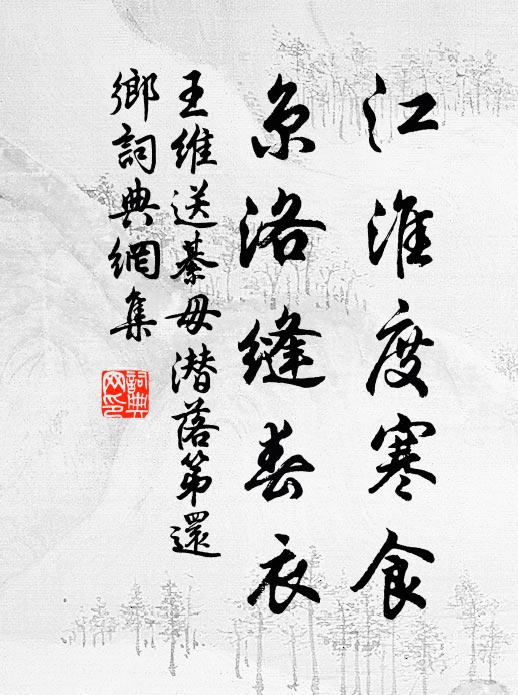 江淮度寒食
京洛缝春衣
王维送綦毋潜落第還
鄉詞典網集
詞典网印